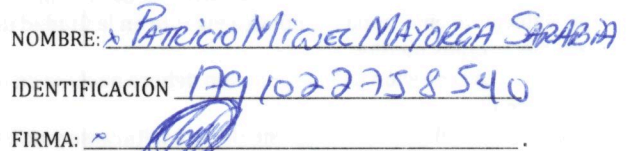 NOMBRE: x PATRICIO MIGUEL MAYORGA SARABIA
IDENTIFICACIÓN 1791022758540
FIRMA: x